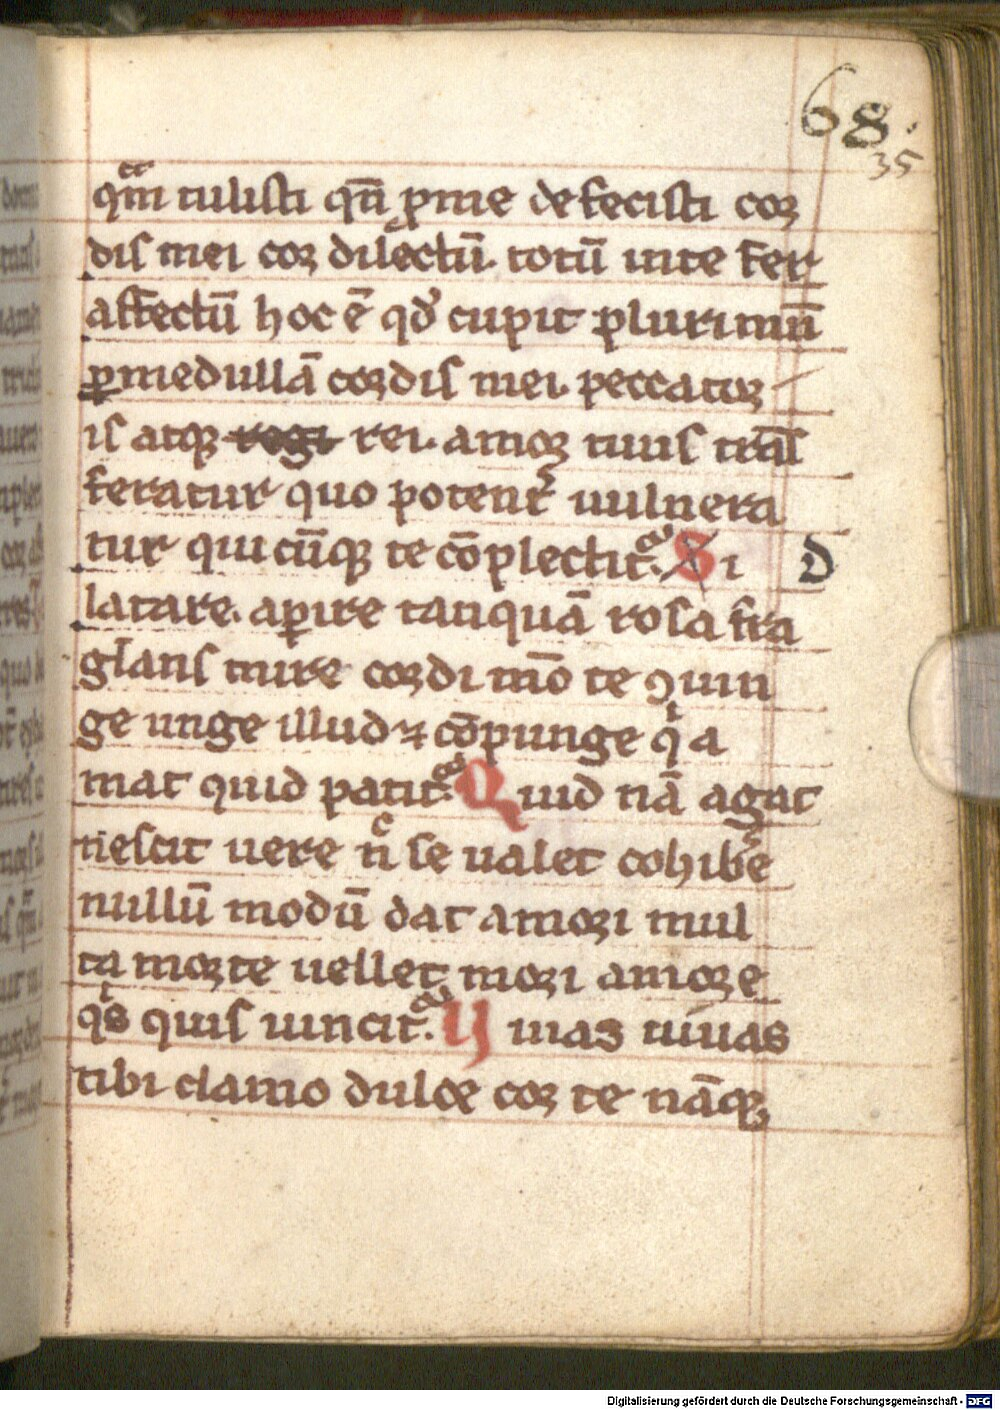 68.
35
q̄m tulisti qn̄ ꝓ me defecisti cor
dis mei cor dilectū. totū in te fer
affectū hoc ē qd̓ cupit plurimū
ꝑ medullā cordis mei. peccator
is atqꝫ regi rei. amor tuus trā̄s
feratur quo potent᷑ uulnera
tur qui cūqꝫ te cōplectit᷑. Si D
latare. aꝑire tanquā rosa fra
glans mire cordi mõ te ꝯiun
ge unge illud ⁊ cōpunge qͥ a
mat quid patit᷑. Quid nā agat
nescit uere nͨ se ualet cohib̓e
nullū modū dat amori mul
ta morte uellet mori amore
qͥs quis uincit᷑. Uiuas uiuas
tibi clamo dulce cor te nāqꝫ
Digitalisierung gefördert durch die Deutsche Forschungsgemeinschaft - DFG